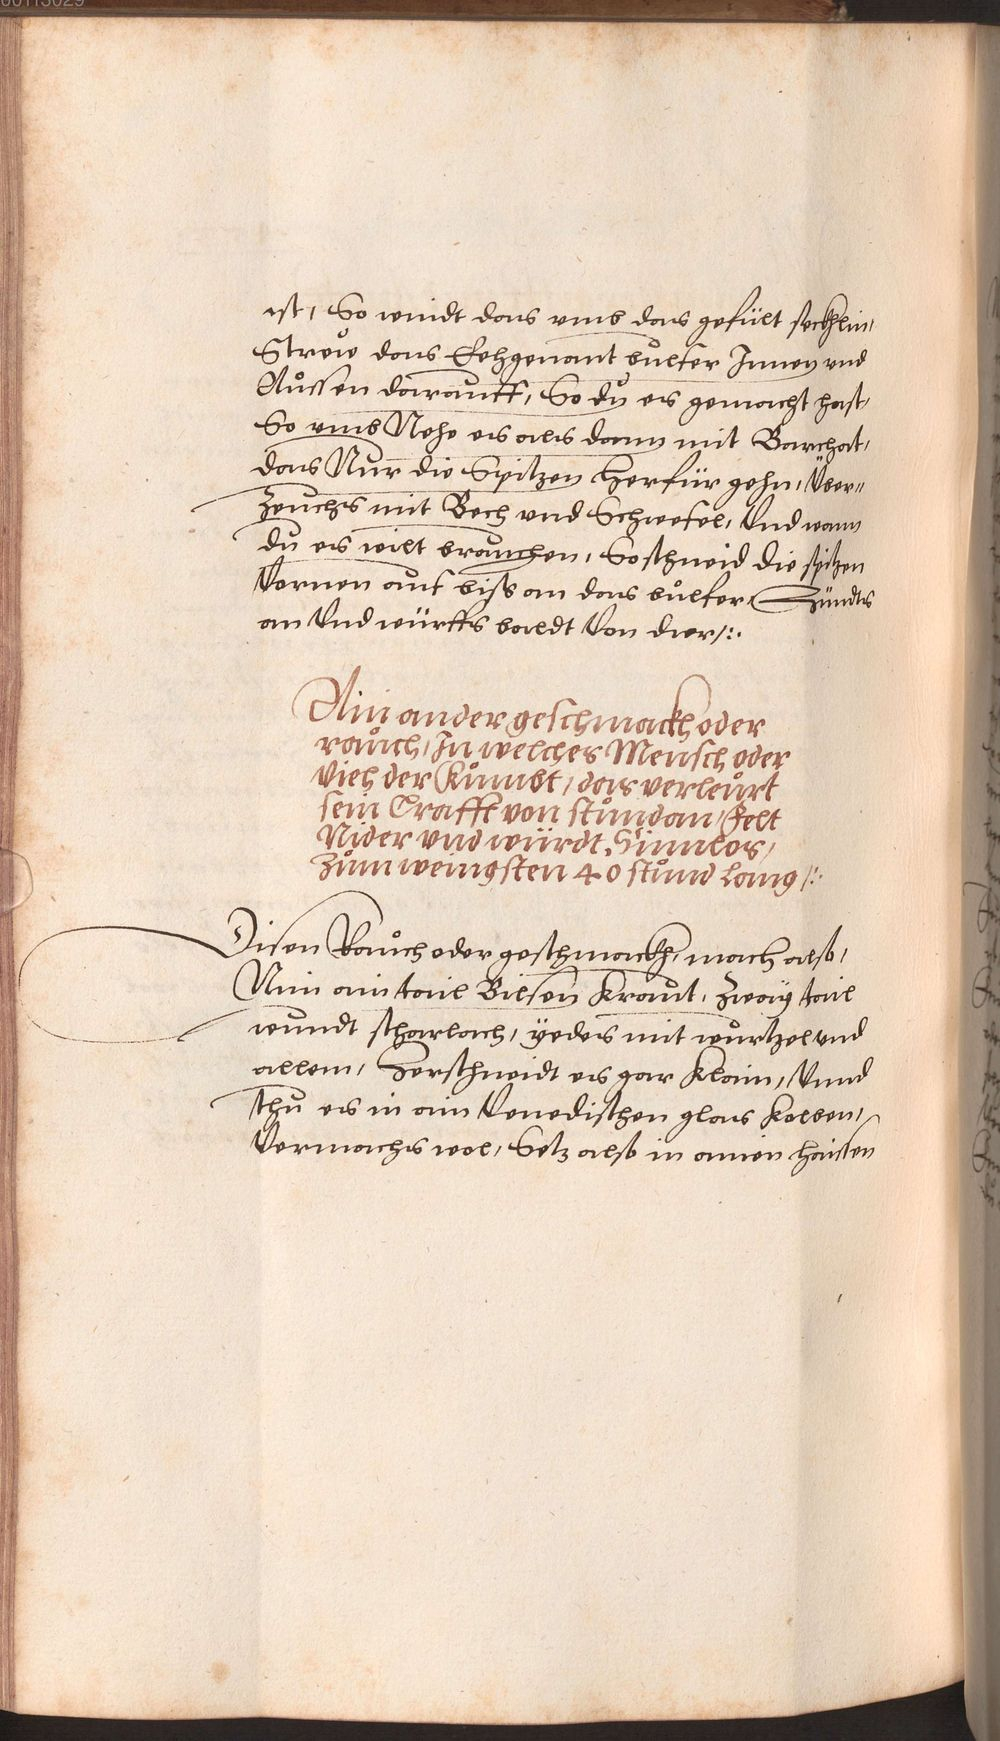 00113029
ist, So windt das vmb das gefült seckhlin,
Strew das Eehgenant bulfer Innen vnd
Außen darauff, So du es gemacht hast,
So vmb Nehe es als dann mit Barchat,
das Nur die Spitzen herfür gehn, Über=
Zeuchs mit Bech vnd Schwefel, Vnd wann
du es wilt brauchen, So schneid die spitzen
Vornen auf biß an das bulfer, Zündts
an Vnd würffs baldt Von dier /:.
Ain ander geschmackh oder
rauch, In welches Mensch oder
Vieh der Kumbt, das verleurt
sein Crafft von stundan, Felt
Nider vnd würdt Sinnlos,
Zum weingsten 40 stund lang /:.
Disen Rauch oder geschmackh, mach also,
Nim ain tail Bilsen Kraut, Zway tail
wundt scharlach, yedes mit wurtzel vnd
allem, Zerschneidt es gar Klain, Vnnd
thu es in ain Venedischen glas Kolben,
Vermachs wol, Setz also in ainen haisen